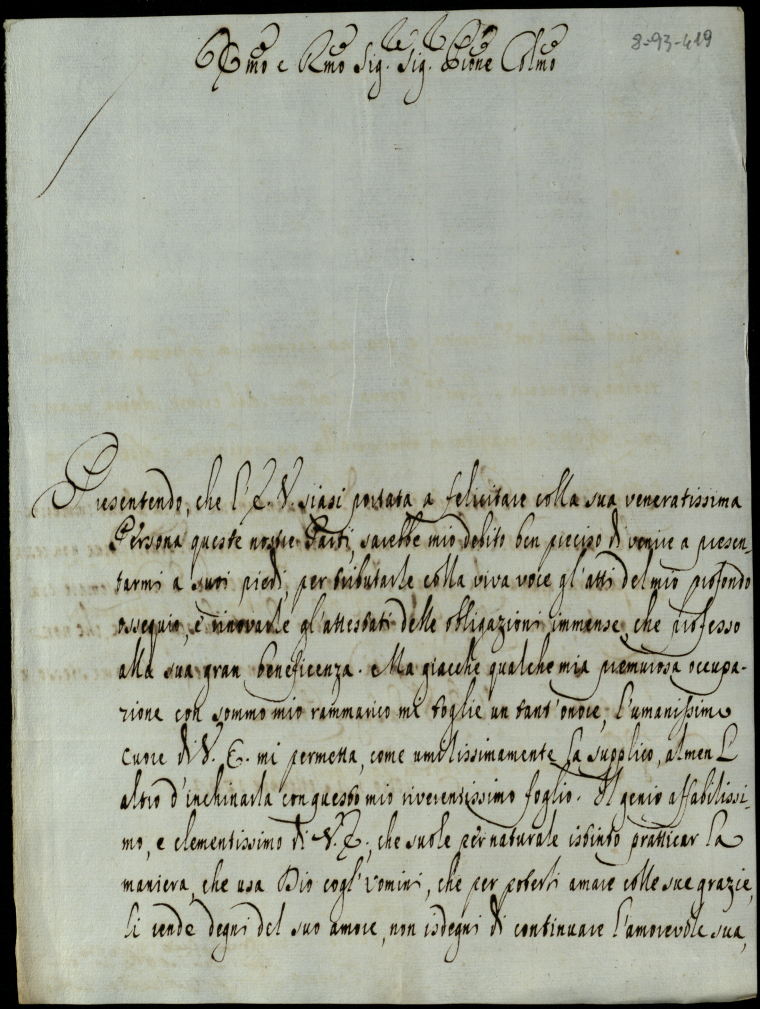 8-93-419
Emo e Rmo Sig. Sig. Prone Colmo
Presentendo, che l'E. V. siasi portata a felicitare colla sua veneratissima
Persona queste nostre Parti, sarebbe mio debito ben preciso di venire a presen-
tarmi a suoi piedi, per tributarle colla viva voce gl'atti del mio profondo
ossequio, e rinovarle gl'attestati delle obligazioni immense, che professo
alla sua gran beneficenza. Ma giacche qualche mia premurosa occupa-
zione con sommo mio rammarico me toglie un tant'onore, l'umanissimo
cuore di V. E. mi permetta, come umilissimamente La supplico, almen L
altro d'inchinarla con questo mio riverentissimo foglio. Il genio affabilissi-
mo, e clementissimo di V. E., che suole per naturale istinto pratticar la
maniera, che usa Dio cogl'Uomini, che per poterli amare colle sue grazie,
li rende degni del suo amore, non isdegni di continuare l'amorevole sua,